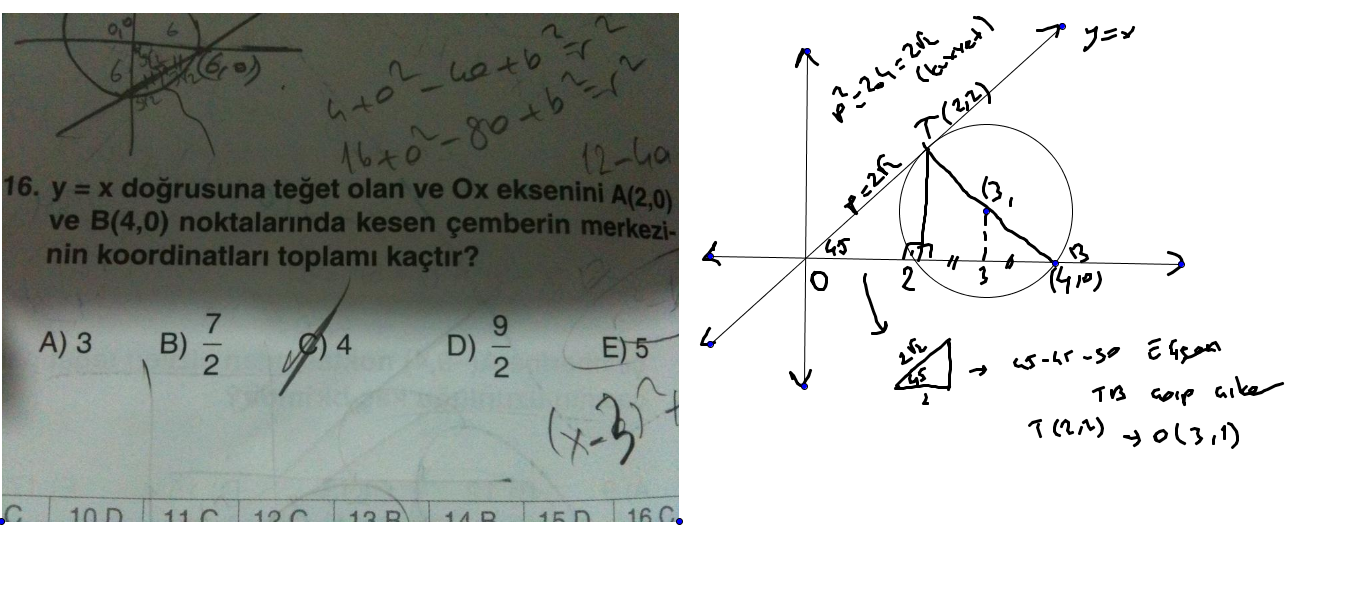 0,0 6
6 (6,0)
4+a²-4a+b²=r²
16+a²-8a+b²=r²
12-4a
16. y = x doğrusuna teğet olan ve Ox eksenini A(2,0)
ve B(4,0) noktalarında kesen çemberin merkezi-
nin koordinatları toplamı kaçtır?
A) 3 B) 7/2 C) 4 D) 9/2 E) 5
(x-3)²+
C 10 D 11 C 12 C 13 B 14 B 15 D 16 C
y=x
p²=2.4=2√2
(kuvvet)
T(2,2)
p=2√2
(3,
45
B
O 2 3 (4,0)
2√2
45
2
→ 45-45-90 Üçgen
TB çap çıkar
T(2,2) → O(3,1)